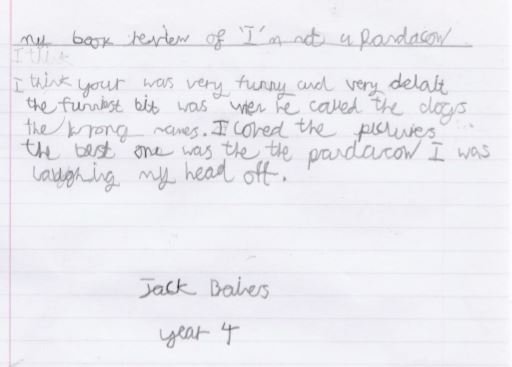 my book review of 'I'm not a Pandacow.
I think
I think your was very funny and very delait
the funniest bit was wen he called the dogs
the krong names. I loved the pictures
the best one was the the pandacow I was
laughing my head off.
Jack
year 4